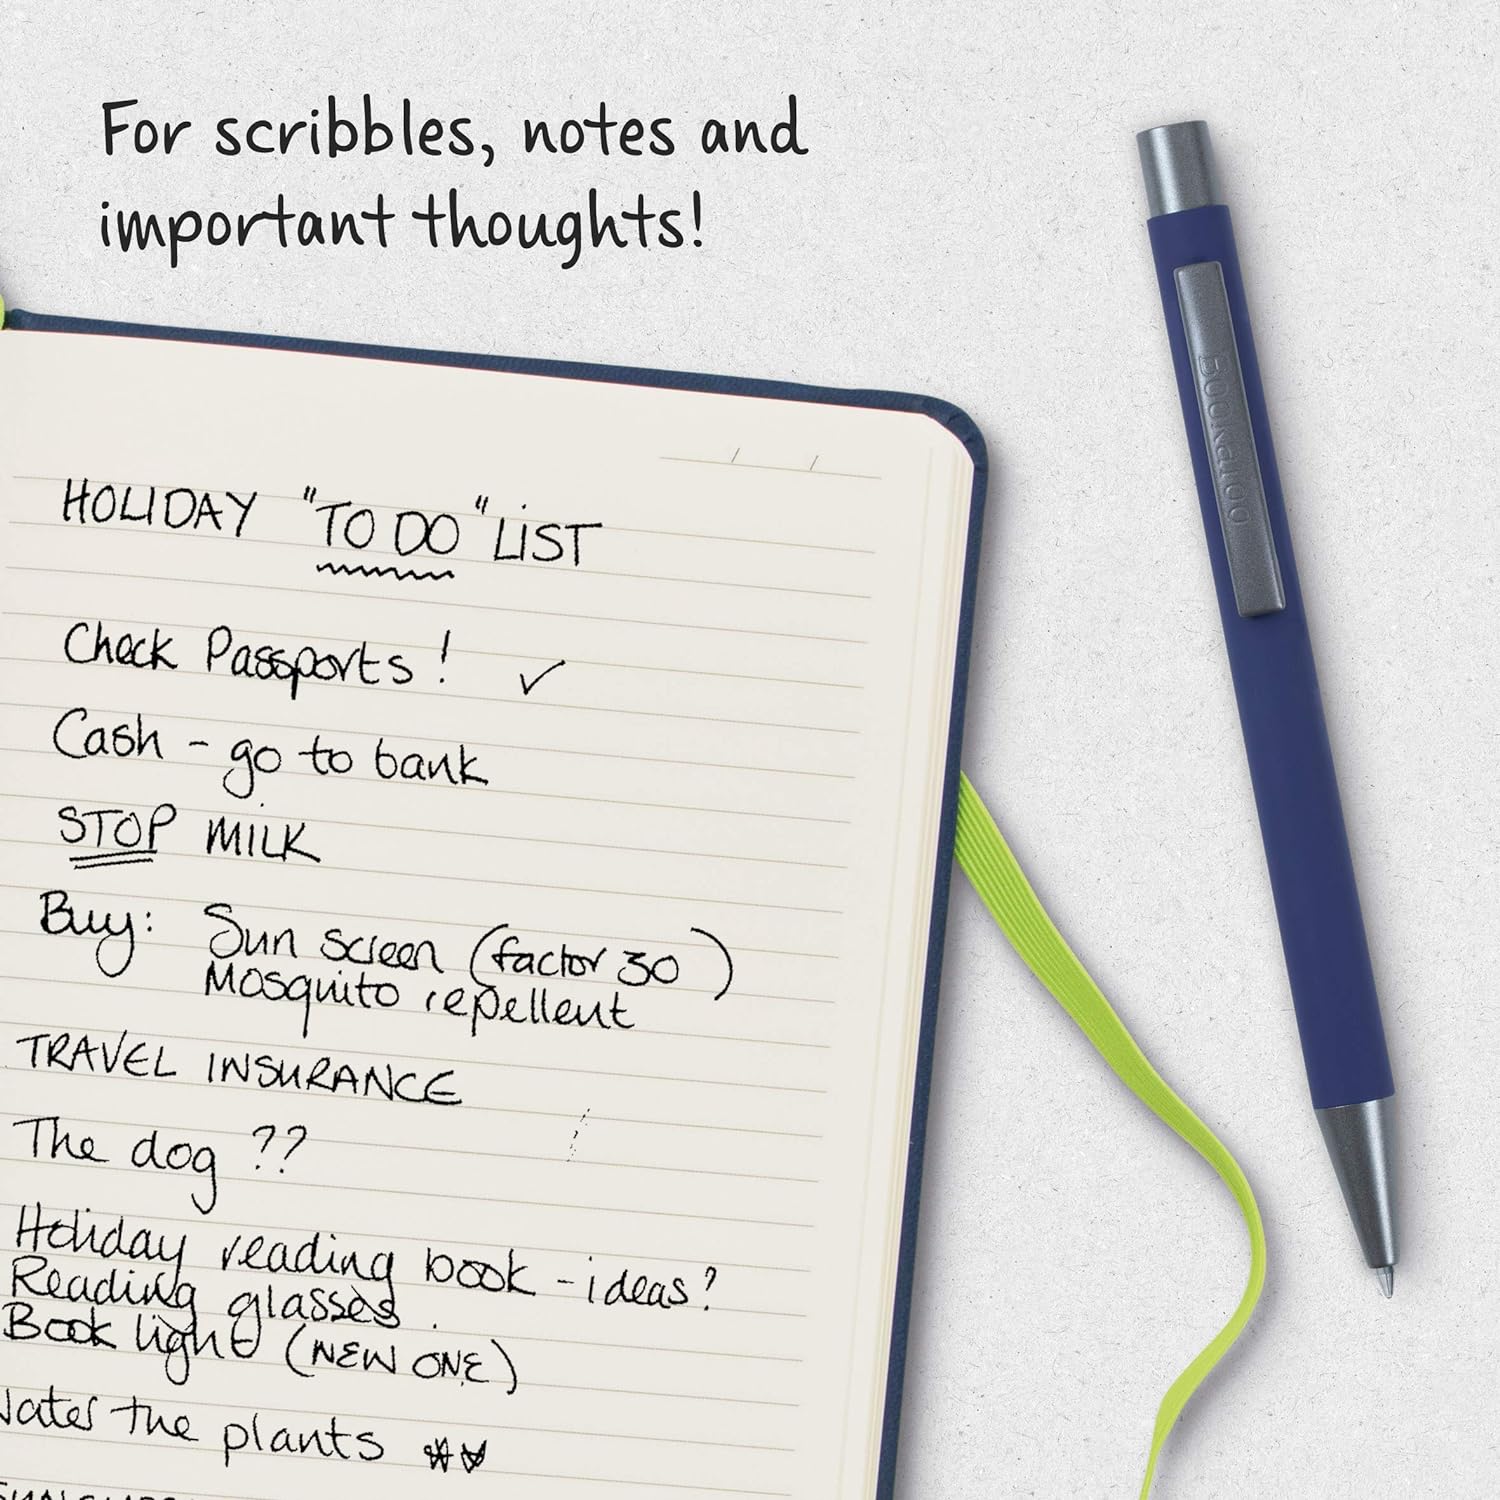 For scribbles, notes and
important thoughts!
bookaroo
HOLIDAY "TO DO" LIST
Check Passports! ✓
Cash - go to bank
STOP MILK
Buy: Sun screen (factor 30)
Mosquito repellent
TRAVEL INSURANCE
The dog ??
Holiday reading book - ideas?
Reading glasses
Book light (NEW ONE)
Water the plants